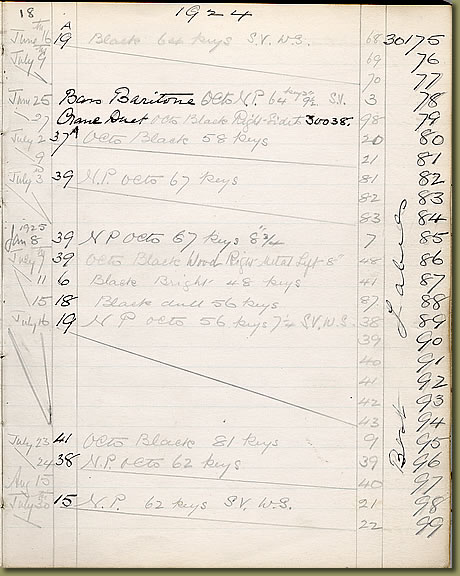 18 1924
June 16 19 A Black 64 keys S.V. W.S. 68 30175
July 9 69 76
70 77
Jun 25 Bass Baritone Octo N.P. 64 keys 9½ S.V. 3 78
27 Crane Duet Octo Black Right Side 30038 98 79
July 2 37A Octo Black 58 keys 20 80
9 21 81
July 3 39 N.P. Octo 67 keys 81 82
82 83
83 84
1925
Jan 8 39 N P Octo 67 keys 8¾ 7 85
July 9 39 Octo Black Wood Right Metal Left 8" 48 86
11 6 Black Bright 48 keys 41 87
15 18 Black dull 56 keys 87 88
July 16 19 N P Octo 56 keys 7¼ S.V. W.S. 38 89
39 90
40 91
41 92
42 93
43 94
July 23 41 Octo Black 81 keys 9 95
24 38 N.P. Octo 62 keys 39 96
Aug 15 40 97
July 30 15 N.P. 62 keys S.V. W.S. 21 98
22 99
Best